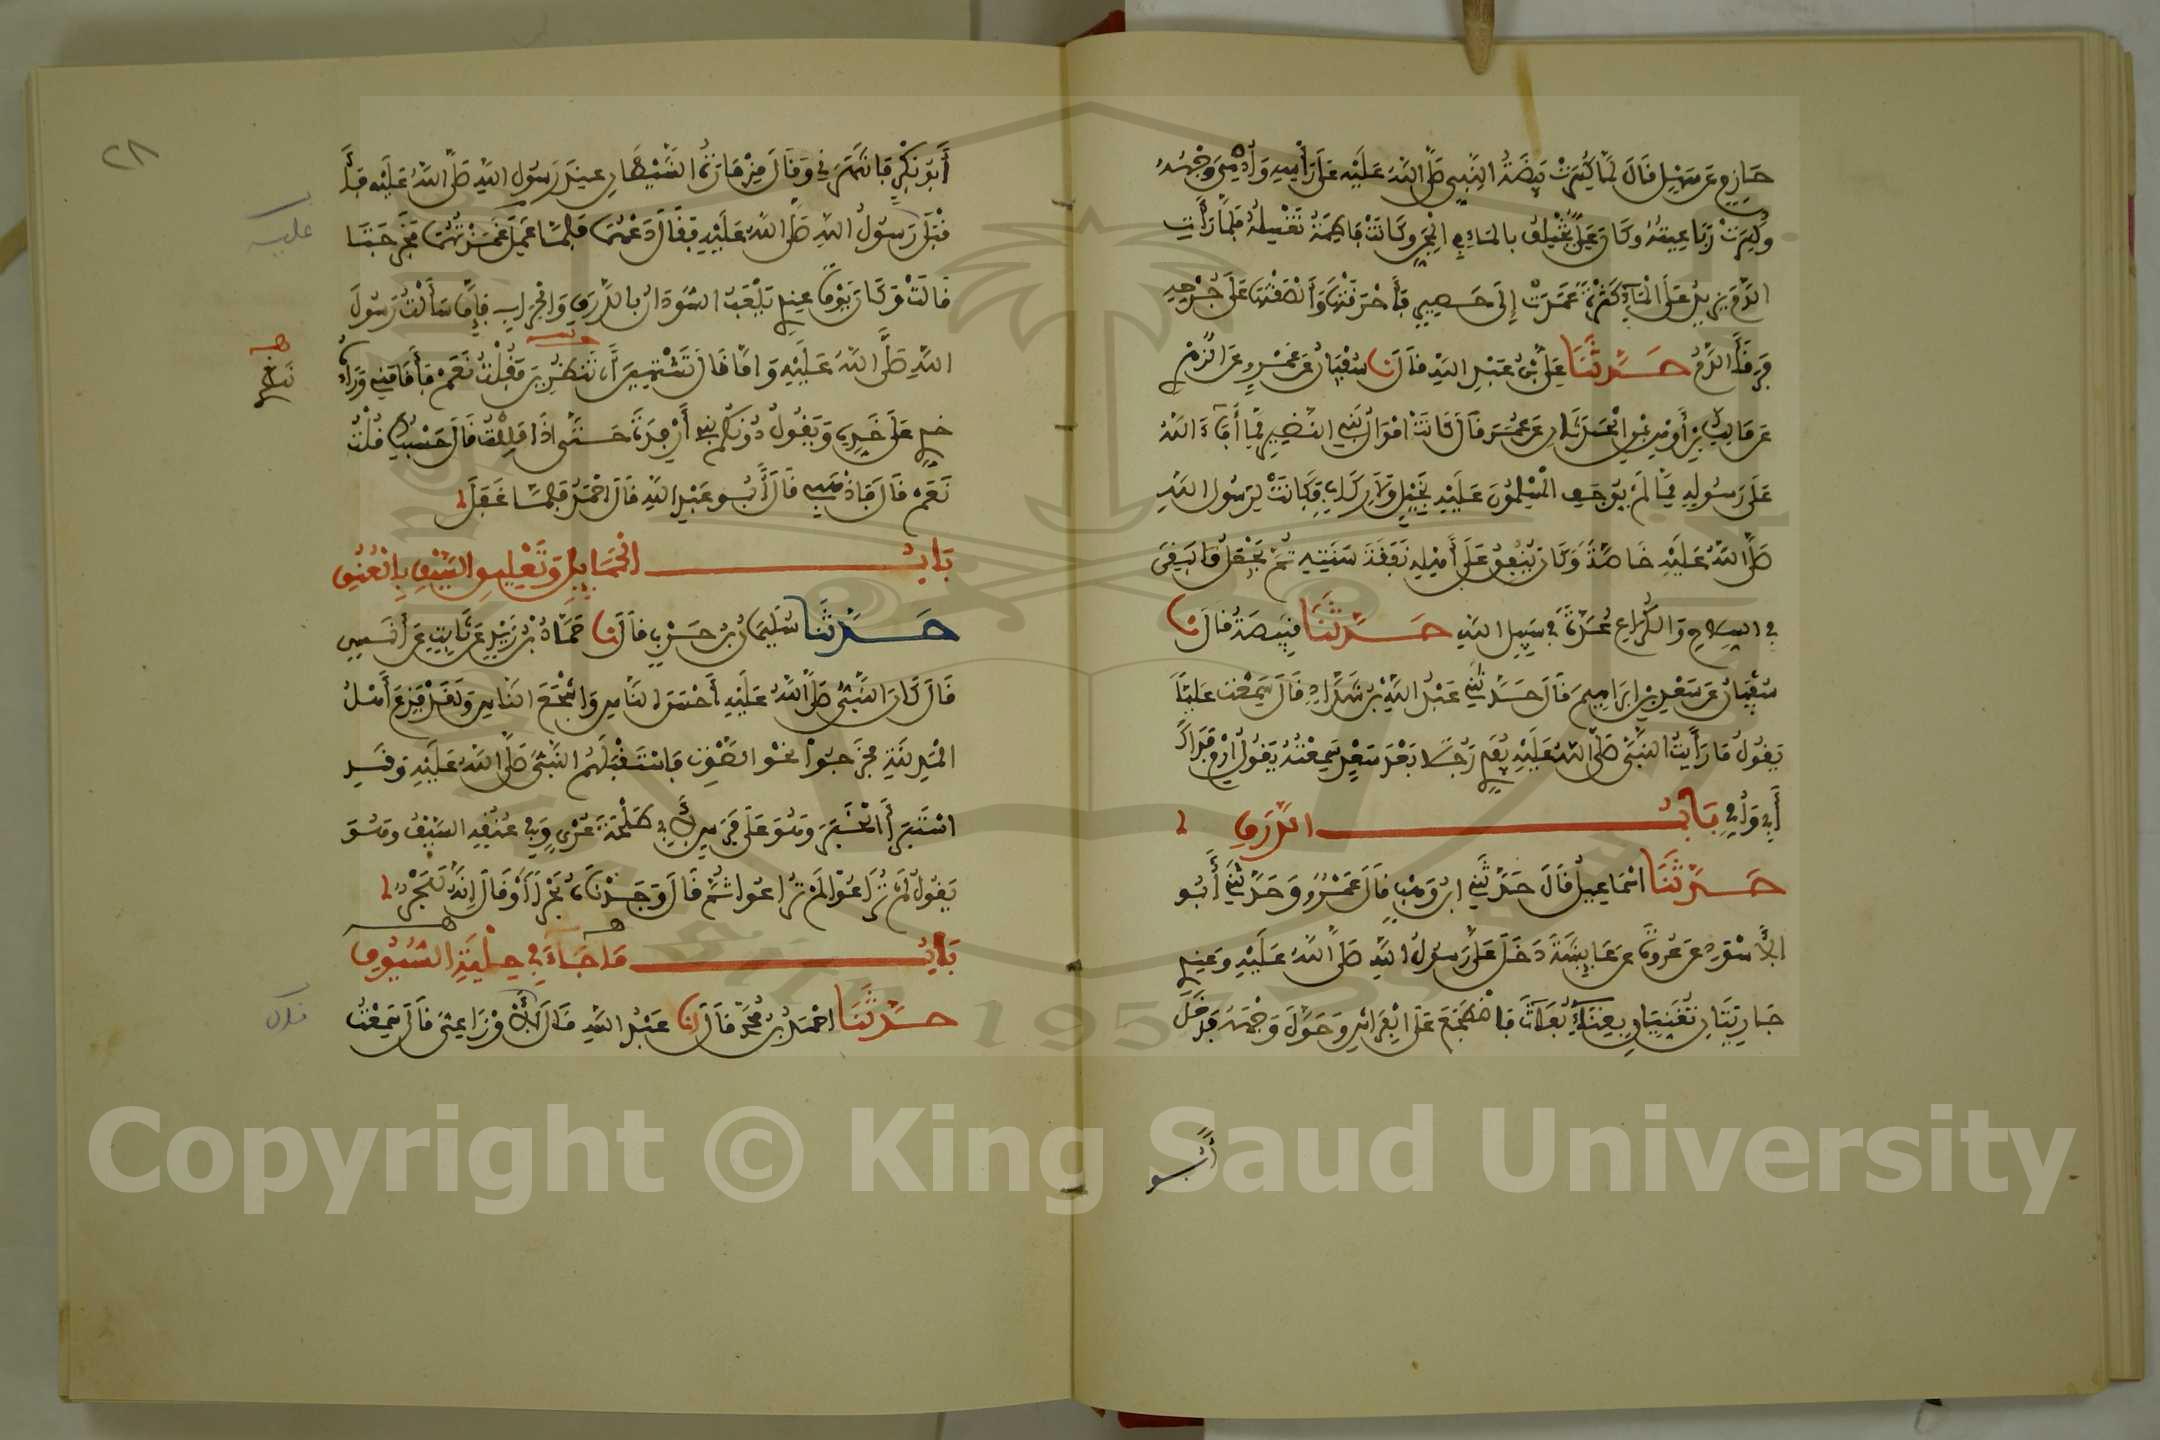 حَازِمٍ عَن سَهْلٍ قَالَ لَمَّا كُسِرَتْ بَيْضَةُ النَّبِيِّ صَلَّى اللَّهُ عَلَيْهِ عَلَى رَأْسِهِ وَأُدْمِيَ وَجْهُهُ
وَكُسِرَتْ رَبَاعِيَتُهُ وَكَانَ عَلِيٌّ يَخْتَلِفُ بِالْمَاءِ فِي الْمِجَنِّ وَكَانَتْ فَاطِمَةُ تَغْسِلُهُ فَلَمَّا رَأَتِ
الدَّمَ يَزِيدُ عَلَى الْمَاءِ كَثْرَةً عَمَدَتْ إِلَى حَصِيرٍ فَأَحْرَقَتْهَا وَأَلْصَقَتْهَا عَلَى جُرْحِهِ
فَرَقَأَ الدَّمُ حَدَّثَنَا عَلِيُّ بْنُ عَبْدِ اللَّهِ قَالَ نا سُفْيَانُ عَن عَمْرٍو عَنِ الزُّهْرِيِّ
عَن مَالِكِ بْنِ أَوْسِ بْنِ الْحَدَثَانِ عَن عُمَرَ قَالَ كَانَتْ أَمْوَالُ بَنِي النَّضِيرِ مِمَّا أَفَاءَ اللَّهُ
عَلَى رَسُولِهِ مِمَّا لَمْ يُوجِفِ الْمُسْلِمُونَ عَلَيْهِ بِخَيْلٍ وَلَا رِكَابٍ فَكَانَتْ لِرَسُولِ اللَّهِ
صَلَّى اللَّهُ عَلَيْهِ خَاصَّةً وَكَانَ يُنْفِقُ عَلَى أَهْلِهِ نَفَقَةَ سَنَتِهِ ثُمَّ يَجْعَلُ مَا بَقِيَ
فِي السِّلَاحِ وَالْكُرَاعِ عُدَّةً فِي سَبِيلِ اللَّهِ حَدَّثَنَا قَبِيصَةُ قَالَ نا
سُفْيَانُ عَن سَعْدِ بْنِ إِبْرَاهِيمَ قَالَ حَدَّثَنِي عَبْدُ اللَّهِ بْنُ شَدَّادٍ قَالَ سَمِعْتُ عَلِيًّا
يَقُولُ مَا رَأَيْتُ النَّبِيَّ صَلَّى اللَّهُ عَلَيْهِ يُفَدِّي رَجُلًا بَعْدَ سَعْدٍ سَمِعْتُهُ يَقُولُ ارْمِ فَدَاكَ
أَبِي وَأُمِّي بَابُ الدَّرَقِ
حَدَّثَنَا اسْمَاعِيلُ قَالَ حَدَّثَنِي ابْنُ وَهْبٍ قَالَ عَمْرٌو وَحَدَّثَنِي أَبُو
الْأَسْوَدِ عَن عُرْوَةَ عَن عَائِشَةَ دَخَلَ عَلَيَّ رَسُولُ اللَّهِ صَلَّى اللَّهُ عَلَيْهِ وَعِنْدِي
جَارِيَتَانِ تُغَنِّيَانِ بِغِنَاءِ بُعَاثَ فَاضْطَجَعَ عَلَى الْفِرَاشِ وَحَوَّلَ وَجْهَهُ فَدَخَلَ
أَبُو
٢٨
أَبُو بَكْرٍ فَانْتَهَرَنِي وَقَالَ مِزْمَارَةُ الشَّيْطَانِ عِنْدَ رَسُولِ اللَّهِ صَلَّى اللَّهُ عَلَيْهِ فَأَ
قْبَلَ رَسُولُ اللَّهِ صَلَّى اللَّهُ عَلَيْهِ فَقَالَ دَعْهُمَا فَلَمَّا عَمِلَ غَمَزْتُهُمَا فَخَرَجَتَا
عليه
قَالَتْ وَكَانَ يَوْمَ عِيدٍ يَلْعَبُ السُّودَانُ بِالدَّرَقِ وَالْحِرَابِ فَإِمَّا سَأَلْتُ رَسُولَ
اللَّهِ صَلَّى اللَّهُ عَلَيْهِ وَامَّا قَالَ تَشْتَهِينَ أَنْ تَنْظُرِينَ فَقُلْتُ نَعَمْ فَأَقَامَنِي وَرَاءَهُ
خَدِّي عَلَى خَدِّهِ وَيَقُولُ دُونَكُمْ بَنِي أَرْفِدَةَ حَتَّى اذَا مَلِلْتُ قَالَ حَسْبُكِ قُلْتُ
نَعَمْ قَالَ فَاذْهَبِي قَالَ أَبُو عَبْدِ اللَّهِ قَالَ احْمَدُ فَلَمَّا غَفَلَ
بَابُ الْحَمَائِلِ وَتَعْلِيقِ السَّيْفِ بِالْعُنُقِ
حَدَّثَنَا سُلَيْمَانُ بْنُ حَرْبٍ قَالَ نا حَمَّادُ بْنُ زَيْدٍ عَن ثَابِتٍ عَن أَنَسٍ
قَالَ كَانَ النَّبِيُّ صَلَّى اللَّهُ عَلَيْهِ أَحْسَنَ النَّاسِ وَاشْجَعَ النَّاسِ وَلَقَدْ فَزِعَ أَهْلُ
الْمَدِينَةِ فَخَرَجُوا نَحْوَ الصَّوْتِ فَاسْتَقْبَلَهُمُ النَّبِيُّ صَلَّى اللَّهُ عَلَيْهِ وَقَدِ
اسْتَبْرَأَ الْخَبَرَ وَهُوَ عَلَى فَرَسٍ لِأَبِي طَلْحَةَ عُرْيٍ وَفِي عُنُقِهِ السَّيْفُ وَهُوَ
يَقُولُ لَمْ تُرَاعُوا لَمْ تُرَاعُوا ثُمَّ قَالَ وَجَدْنَاهُ بَحْرًا أَوْ قَالَ إِنَّهُ لَبَحْرٌ
بَابُ مَا جَاءَ فِي حِلْيَةِ السُّيُوفِ
حَدَّثَنَا احْمَدُ بْنُ مُحَمَّدٍ قَالَ أنا عَبْدُ اللَّهِ قَالَ أنا الْأَوْزَاعِيُّ قَالَ سَمِعْتُ
Copyright © King Saud University
1957